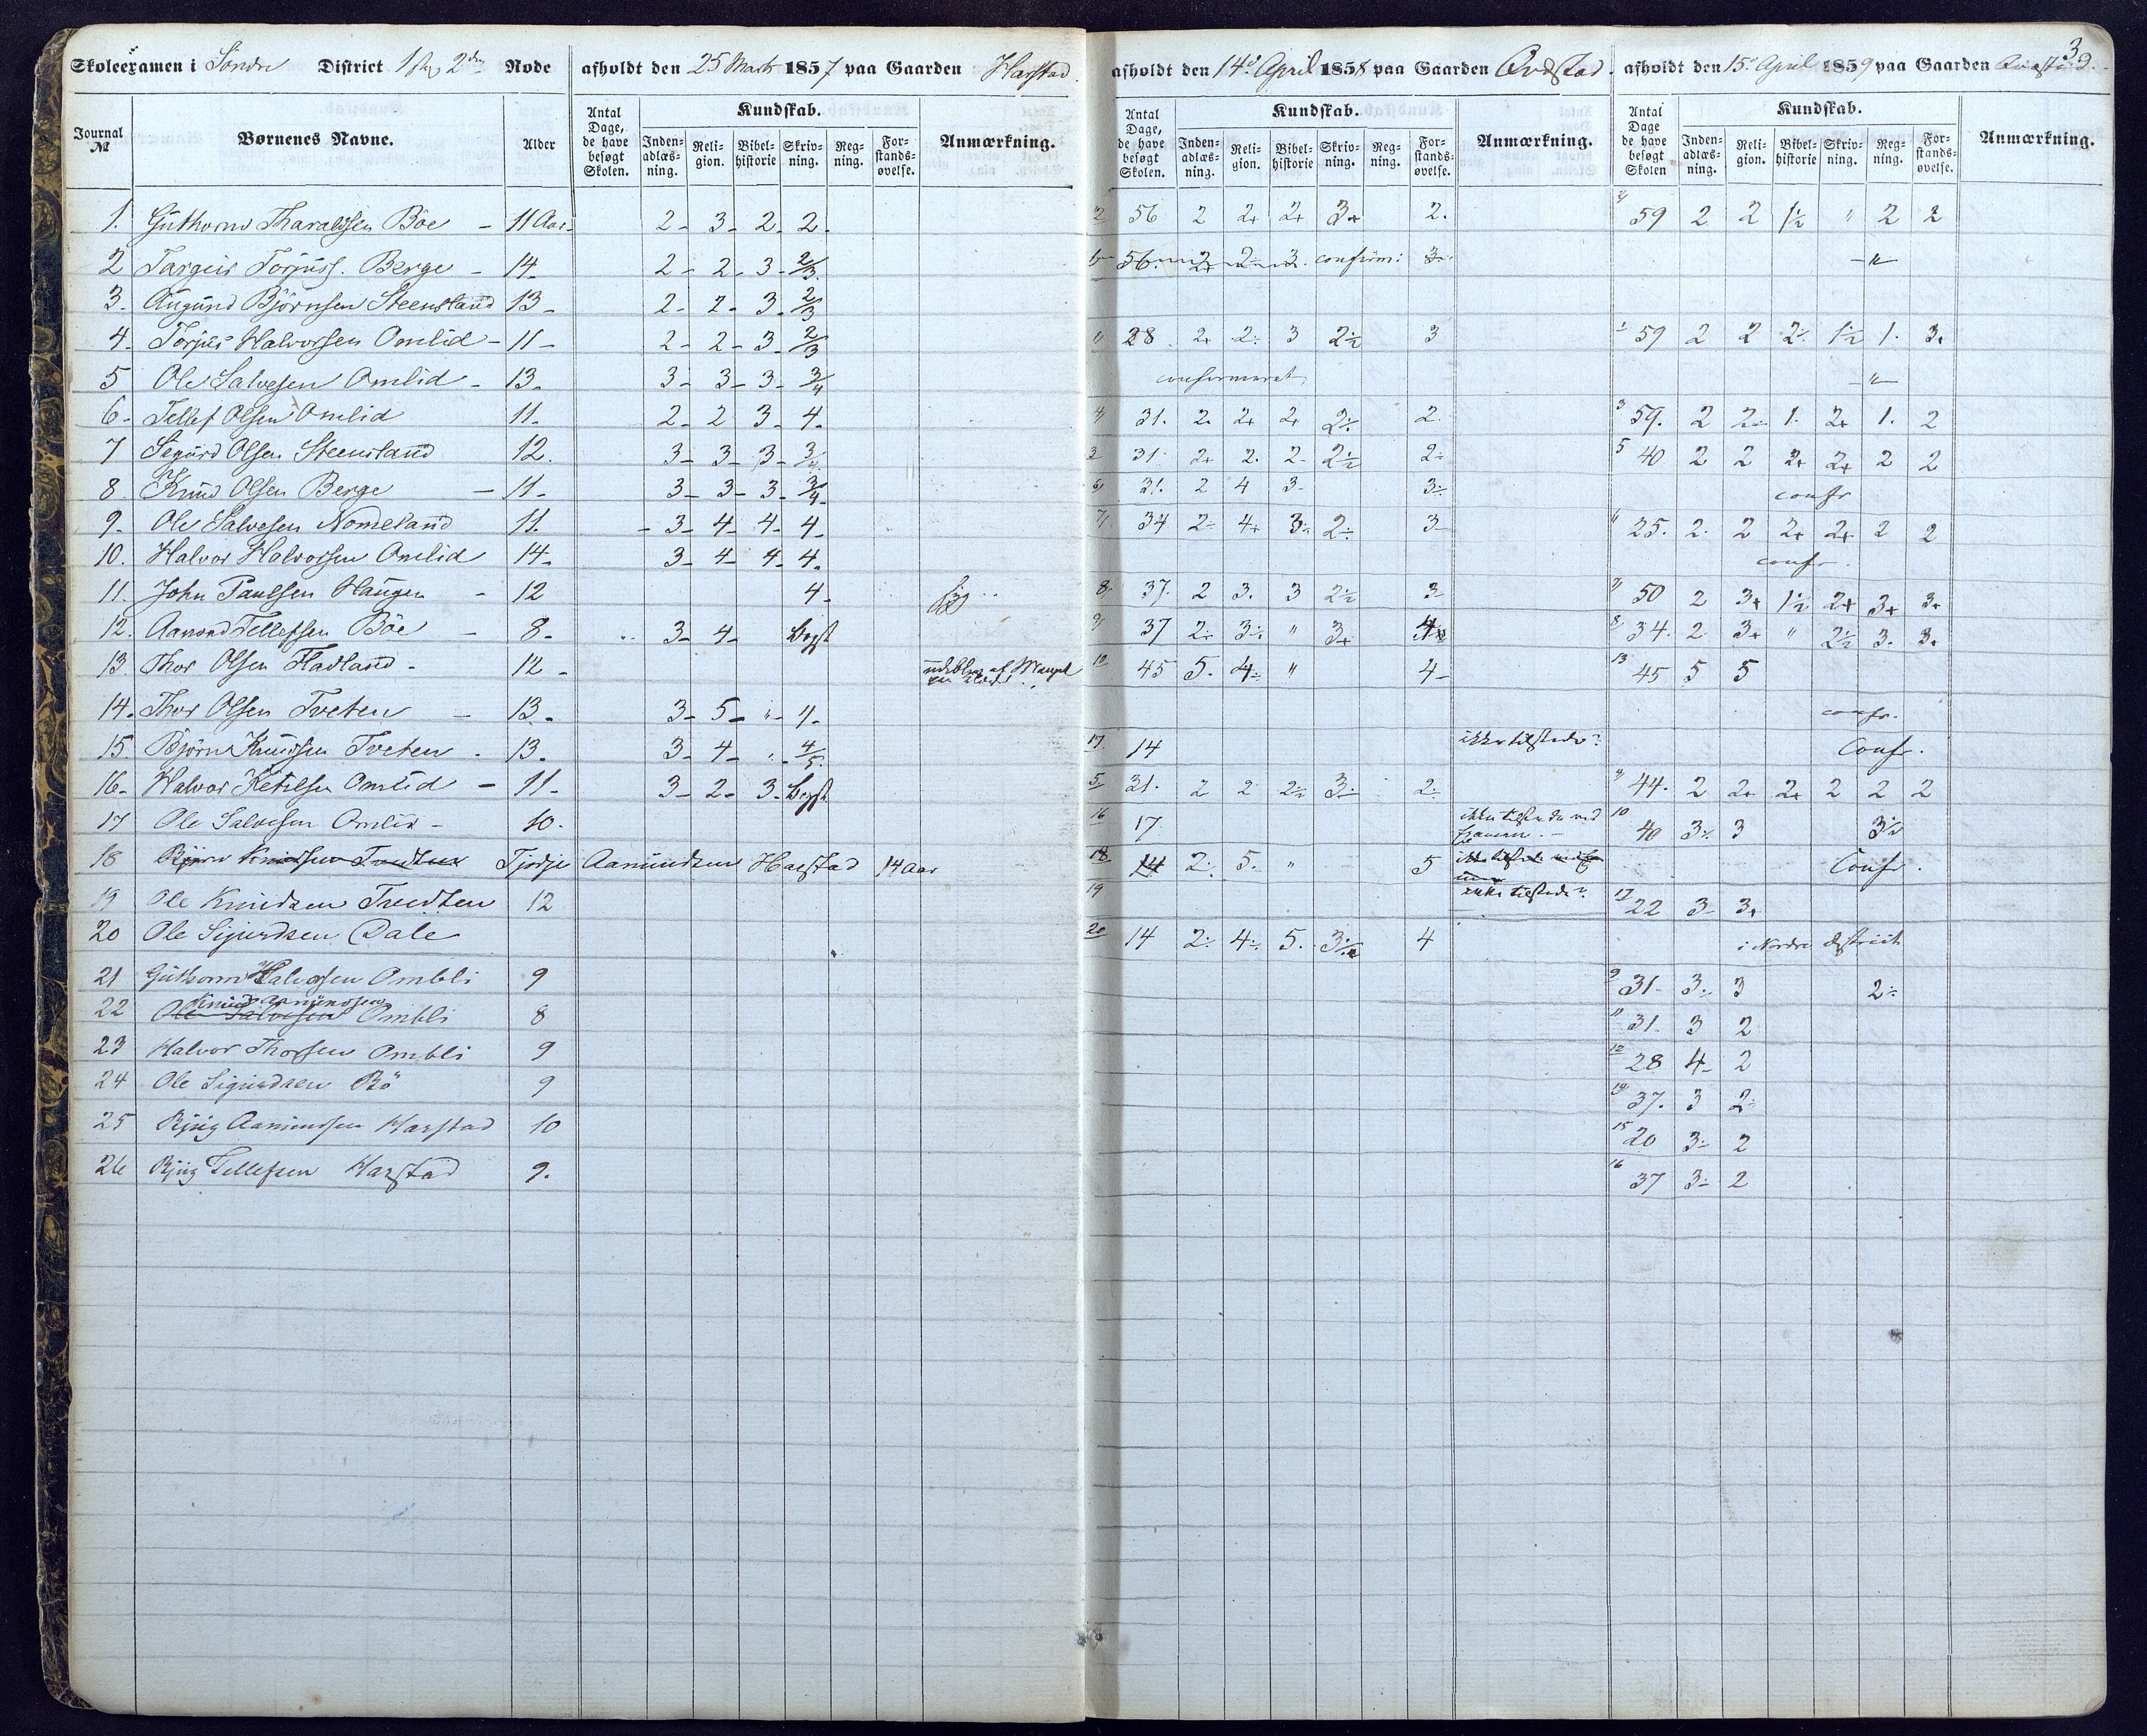 3
Skoleexamen i Søndre District 1ste, 2den Rode afholdt den 25 Marts 1857 paa Gaarden Harstad. afholdt den 14de April 1858 paa Gaarden Qvástad. afholdt den 15de April 1859 paa Gaarden
Journal № Børnenes Navne. Alder Antal Dage, de have besøgt Skolen. Kundskab. Inden-adlæs-ning. Reli-gion. Bibel-historie Skriv-ning. Reg-ning. For-stands-øvelse. Anmærkning. Antal Dage, de have besøgt Skolen. Kundskab. Inden-adlæs-ning. Reli-gion. Bibel-historie Skriv-ning. Reg-ning. For-stands-øvelse. Anmærkning. Antal Dage de have besøgt Skolen Kundskab. Inden-adlæs-ning. Reli-gion. Bibel-historie Skriv-ning. Reg-ning. For-stands-øvelse. Anmærkning.
1. Guthorm Tharaldsen Böe - 11 Aar- 2- 3- 2- 2- 2 56 2 2+ 2+ 3+ 2. 59 2 2 1½ " 2 2
2 Targeir Torjuss. Berge - 14- 2- 2- 3- 2/3 56. 2+ 2- 3. confirm: 3 -"-
3. Augund Björnsen Steensland 13- 2- 2- 3- 2/3
4. Torjus Halvorsen Omlid - 11- 2- 2- 3- 2/3 28 2+ 2÷ 3 2½ 3 1 59 2 2 2÷ 1½ 1. 3+
5 Ole Salvesen Omlid - 13- 3- 3- 3- 3/4 confirmeret -"-
6- Tellef Olsen Omlid 11- 2- 2 3- 4- 4 31. 2. 2+ 2+ 2÷ 2. 3 59. 2 2÷ 1. 2+ 1. 2
7 Sigurd Olsen Steensland 12. 3- 3- 3- 3/4 3 31 2+ 2. 2- 2½ 2÷ 5 40 2 2 2+ 2+ 2 2
8. Knud Olsen Berge - 11- 3- 3- 3- 3/4 6 31. 2 4 3- 3÷ confr
9- Ole Salvesen Nomeland 11. - 3- 4- 4- 4- 7 34 2÷ 4+ 3÷ 2÷ 3- 6 25. 2. 2 2+ 2+ 2 2
10. Halvor Halvorsen Omlid 14- 3- 4- 4- 4- confr.
11. John Paulsen Haugen - 12 4- 8. 37. 2 3. 3 2½ 3- 7 50 2 3+ 1½ 2+ 3+ 3+
12. Aanond Tellefsen Böe - 8- 3- 4- begst 9 37 2÷ 3÷ " 3+ 4+ 8 34. 2 3+ " 2½ 3. 3.
13. Thor Olsen Fladland - 12- udebleven af Mangel paa Klæder 10 45 5. 4÷ " 4- 13 45 5 5
14. Thor Olsen Tveten - 13- 3- 5- "- 4- confr.
15. Björn Knudsen Tveten - 13- 3- 4- "- 4/5. 17 14 ikke tilstede Confr.
16- Halvor Ketilsen Omlid - 11- 3- 2- 3- begst 5 31. 2 2 2½ 3÷ 2÷ 4 44. 2 2+ 2+ 2 2 2
17 Ole Salvesen Omlid - 10- 16 17 ikke tilstede ved Examen. - 10 40 3÷ 3 3½
18 Björn Knudsen Tvedten Tjödje Aamundsen Harstad 14 Aar 18 14 2÷ 5. " 5 ikke tilstede ved Exa Confr.
19 Ole Knudsen Tvedten 12 19 ikke tilstede 17 22 3- 3+
20 Ole Sigurdsen Dale 20 14 2÷ 4÷ 5. 3½ 4 i Nordre district
21 Guthorm Halvorsen Ombli 9 9 31- 3÷ 3 2÷
Knud Aamundsen
22 Ole Salvesen Ombli 8 11 31- 3 2
23 Halvor Thorsen Ombli 9 12 28 4- 2
24 Ole Sigurdsen Bö 9 14 37. 3 2÷
25 Bjug Aamundsen Harstad 10 15 20 3÷ 2
26 Bjug Tellefsen Harstad 9. 16 37 3- 2